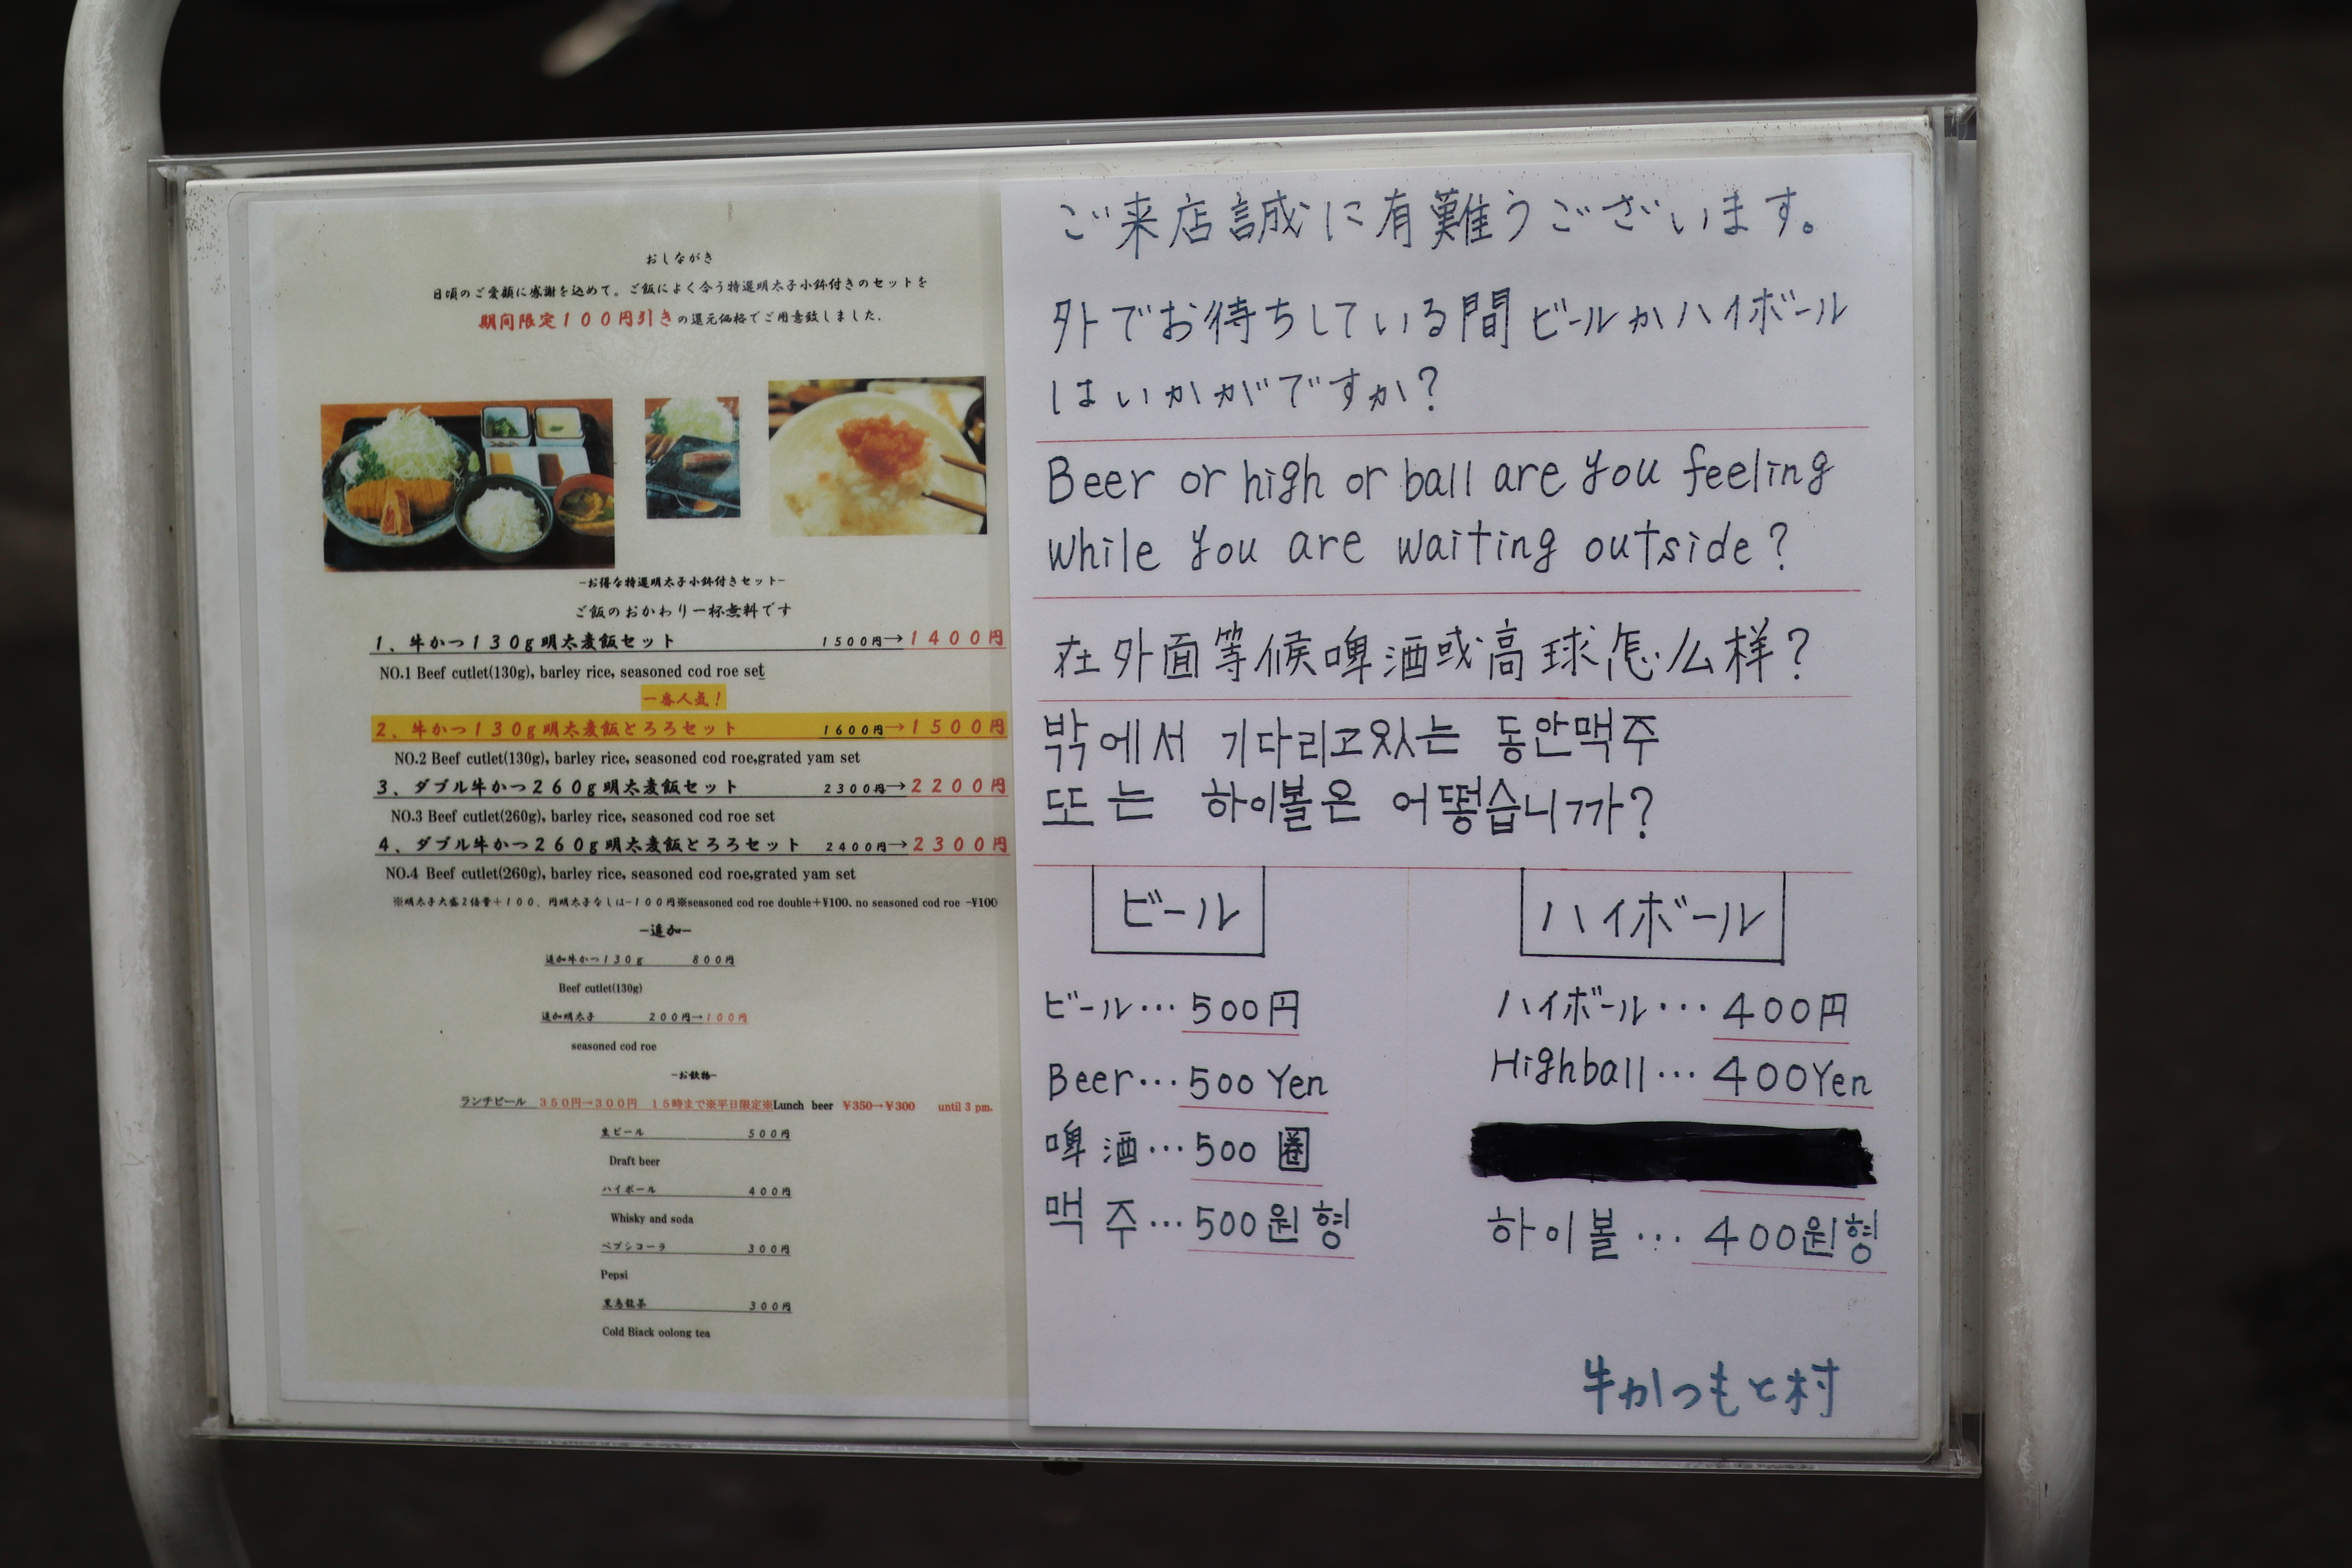 おしながき
日頃のご愛顧に感謝を込めて。ご飯によく合う特選明太子小鉢付きのセットを
期間限定100円引きの還元価格でご用意致しました。
-お得な特選明太子小鉢付きセット-
ご飯のおかわり一杯無料です
1、牛かつ130g明太麦飯セット 1500円→1400円
NO.1 Beef cutlet(130g), barley rice, seasoned cod roe set
一番人気!
2、牛かつ130g明太麦飯とろろセット 1600円→1500円
NO.2 Beef cutlet(130g), barley rice, seasoned cod roe,grated yam set
3、ダブル牛かつ260g明太麦飯セット 2300円→2200円
NO.3 Beef cutlet(260g), barley rice, seasoned cod roe set
4、ダブル牛かつ260g明太麦飯とろろセット 2400円→2300円
NO.4 Beef cutlet(260g), barley rice, seasoned cod roe,grated yam set
※明太子大盛2倍量+100、円明太子なしは-100円※seasoned cod roe double+¥100. no seasoned cod roe -¥100
-追加-
追加牛かつ130g 800円
Beef cutlet(130g)
追加明太子 200円→100円
seasoned cod roe
-お飲物-
ランチビール 350円→300円 15時まで※平日限定※Lunch beer ¥350→¥300 until 3 pm.
生ビール 500円
Draft beer
ハイボール 400円
Whisky and soda
ペプシコーラ 300円
Pepsi
黒烏龍茶 300円
Cold Black oolong tea
ご来店誠に有難うございます。
外でお待ちしている間ビールかハイボール
はいかがですか?
Beer or high or ball are you feeling
while you are waiting outside?
在外面等候啤酒或高球怎么样?
밖에서 기다리고있는 동안맥주
또는 하이볼은 어떻습니까?
ビール
ビール…500円
Beer…500 Yen
啤酒…500 圈
맥주…500원형
ハイボール
ハイボール…400円
Highball…400Yen
하이볼…400원형
牛かつもと村